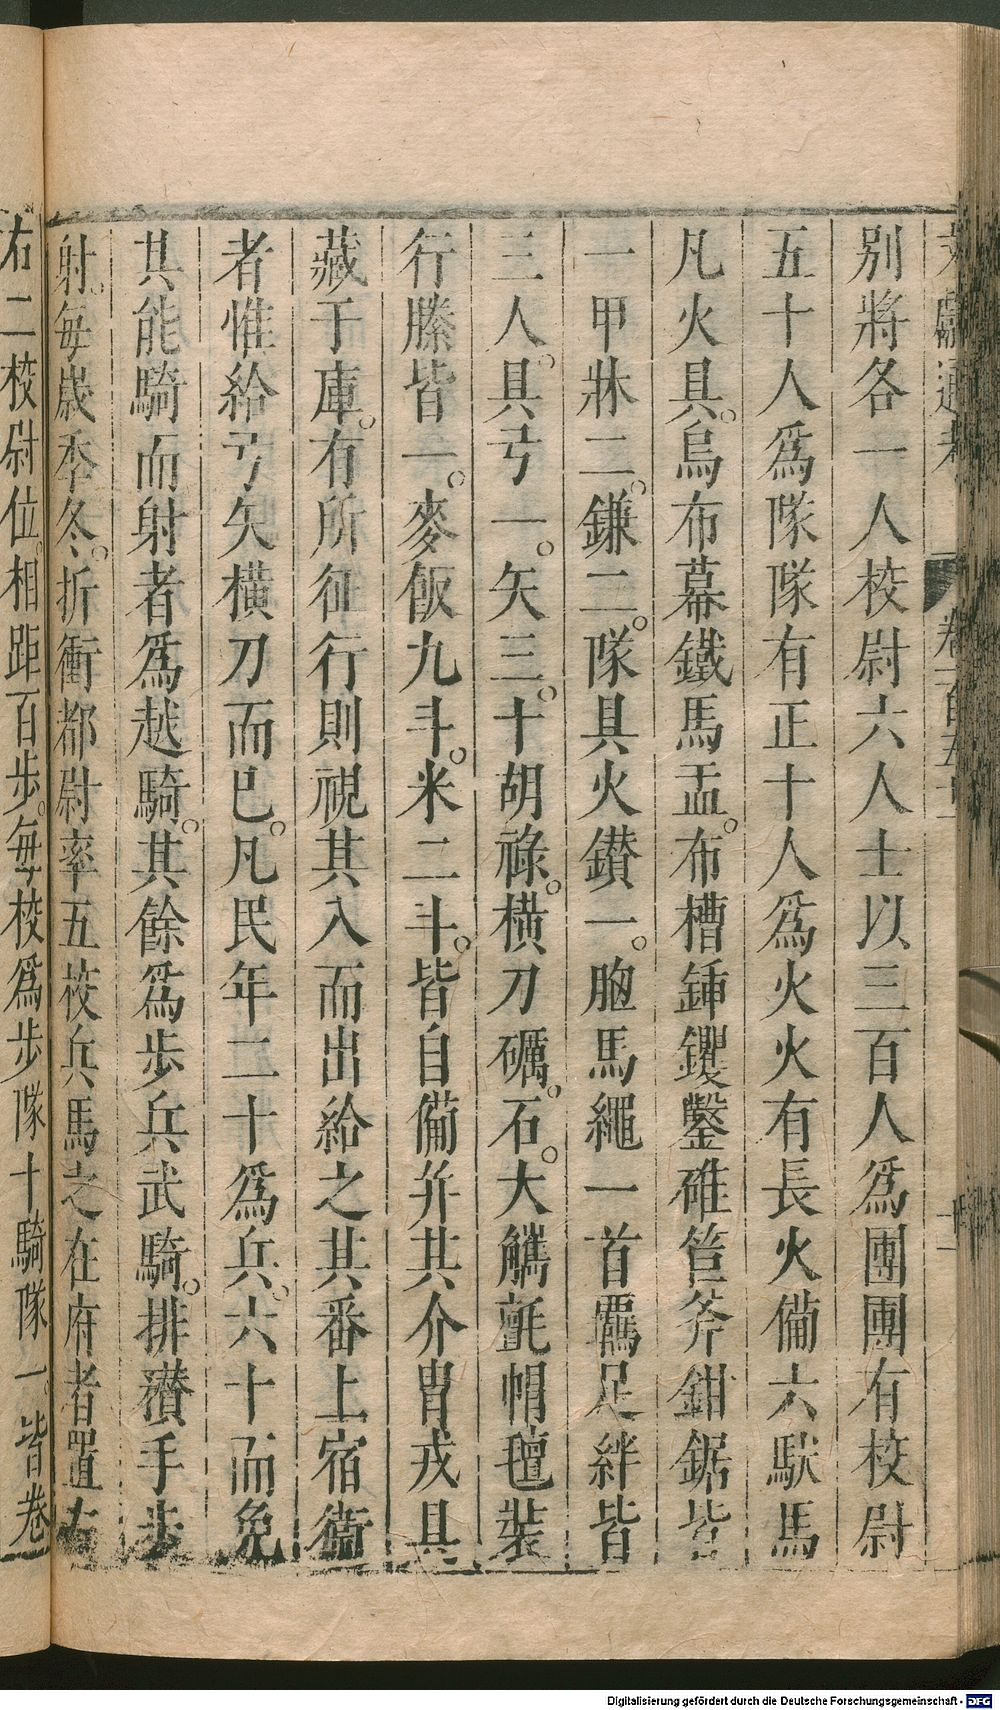 文獻通考 卷一百五十一
別將各一人校尉六人士以三百人爲團團有校尉
五十人爲隊隊有正十人爲火火有長火備六馱馬
凡火具。烏布幕鐵馬盂。布槽鍤钁鑿碓筥斧鉗鋸皆
一甲牀二。鎌二。隊具火鑚一。胸馬繩一首羈足絆皆
三人。具弓一。矢三。十胡祿。橫刀礪。石。大觿氈帽氊裝
行縢皆一。麥飯九斗。米二斗。皆自備并其介冑戎具
藏于庫。有所征行則視其入而出給之其番上宿衞
者惟給弓矢橫刀而已。凡民年二十爲兵。六十而免
其能騎而射者爲越騎。其餘爲步兵武騎。排䂎手步
射。每歲季冬。折衝都尉率五校兵馬之在府者置左
右二校尉位。相距百步。每校爲步隊十騎隊一。皆卷
Digitalisierung gefördert durch die Deutsche Forschungsgemeinschaft - DFG